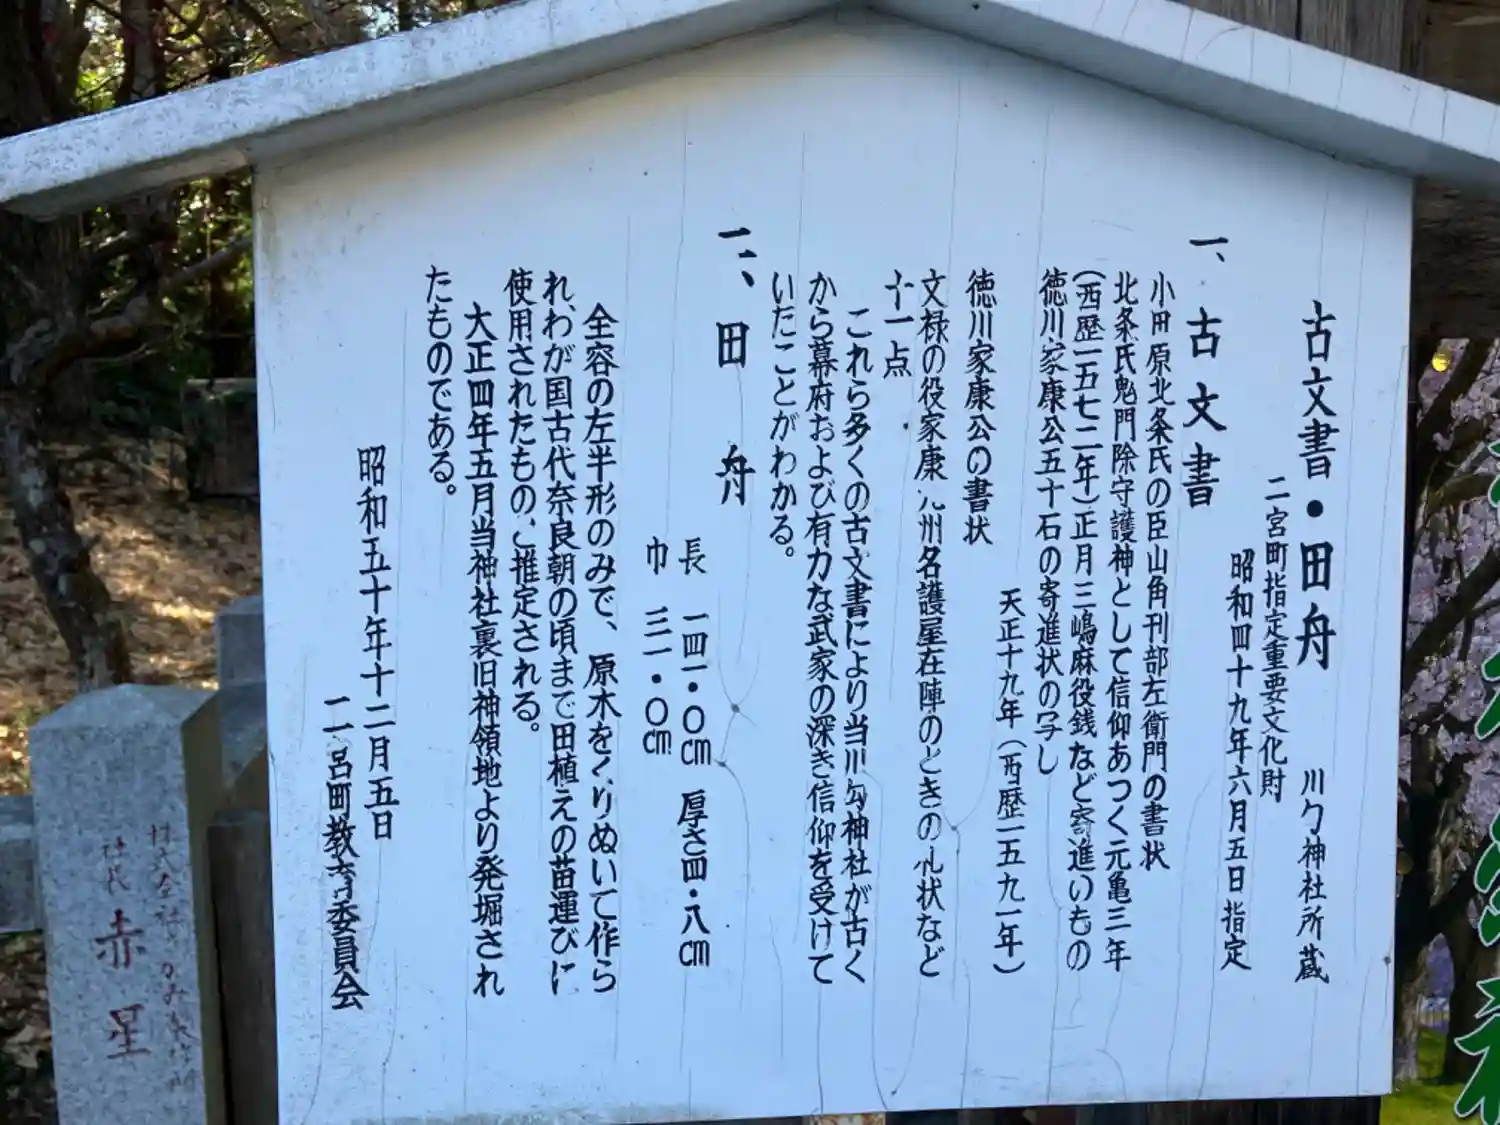 古文書・田舟　川勾神社所蔵
二宮町指定重要文化財
昭和四十九年六月五日指定
一、古文書
小田原北条氏の臣山角刊部左衛門の書状
北条氏鬼門除守護神として信仰あつく元亀三年
(西歴一五七二年)正月三嶋麻役銭など寄進いもの
徳川家康公五十石の寄進状の写し
天正十九年(西歴一五九一年)
徳川家康公の書状
文禄の役家康九州名護屋在陣のときの礼状など
十一点
これら多くの古文書により当川勾神社が古く
から幕府および有力な武家の深き信仰を受けて
いたことがわかる。
二、田舟
長　一四一・〇cm　厚さ四・八cm
巾　三一・〇cm
全容の左半形のみで、原木をくりぬいて作ら
れ、わが国古代奈良朝の頃まで田植えの苗運びに
使用されたものと推定される。
大正四年五月当神社裏旧神領地より発堀され
たものである。
昭和五十年十二月五日
二宮町教育委員会
赤星